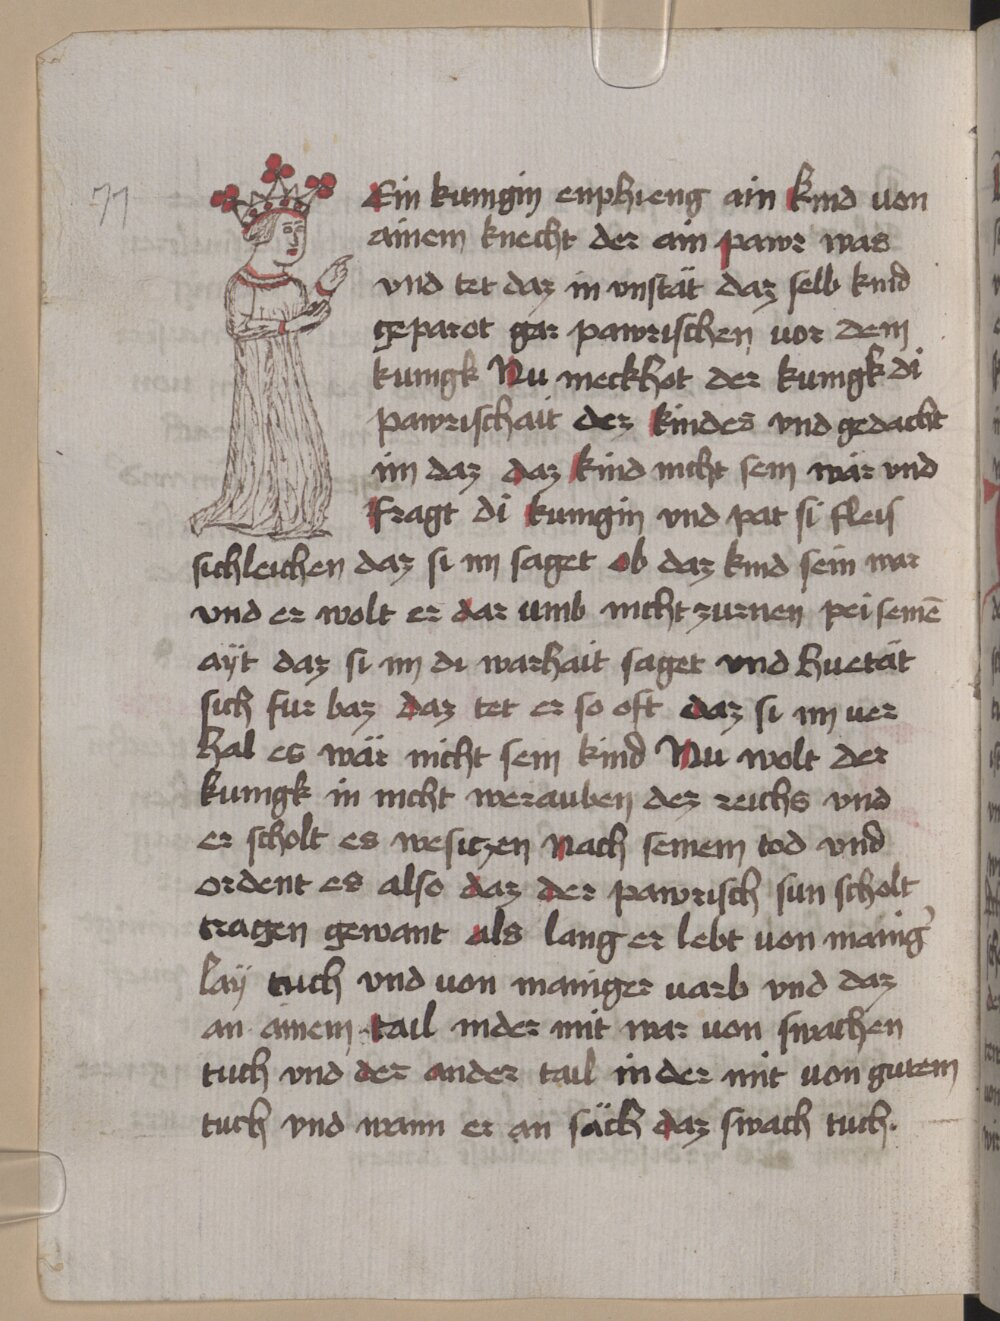 77
Ein kunigin enphieng ain kind von
ainem knecht der ain pawr was
vnd tet daz in vnstät daz selb kind
geparot gar pawrischen vor dem
kunigk Nu meckhot der kunigk di
pawrischait der kindes vnd gedacht
im daz daz kind nicht sein wär vnd
fragt di kunigin vnd pat si fleis
sichleichen daz si im saget ob daz kind sein war
vnd er wolt er dar umb nicht zurnen pei seinē
aÿt daz si im di warhait saget vnd huetät
sich fur baz daz tet er so oft daz si im ver
hal es wär nicht sein kind Nu wolt der
kunigk in nicht werauben dez reichs vnd
er scholt es wesitzen nach seinem tod vnd
ordent es also daz der pawrisch sun scholt
tragen gewant als lang er lebt von manig
laÿ tuch vnd von maniger varb vnd daz
an ainem tail inder mit war von swachen
tuch vnd der ander tail in der mit von gutem
tuch vnd wann er an säch daz swach tuch.